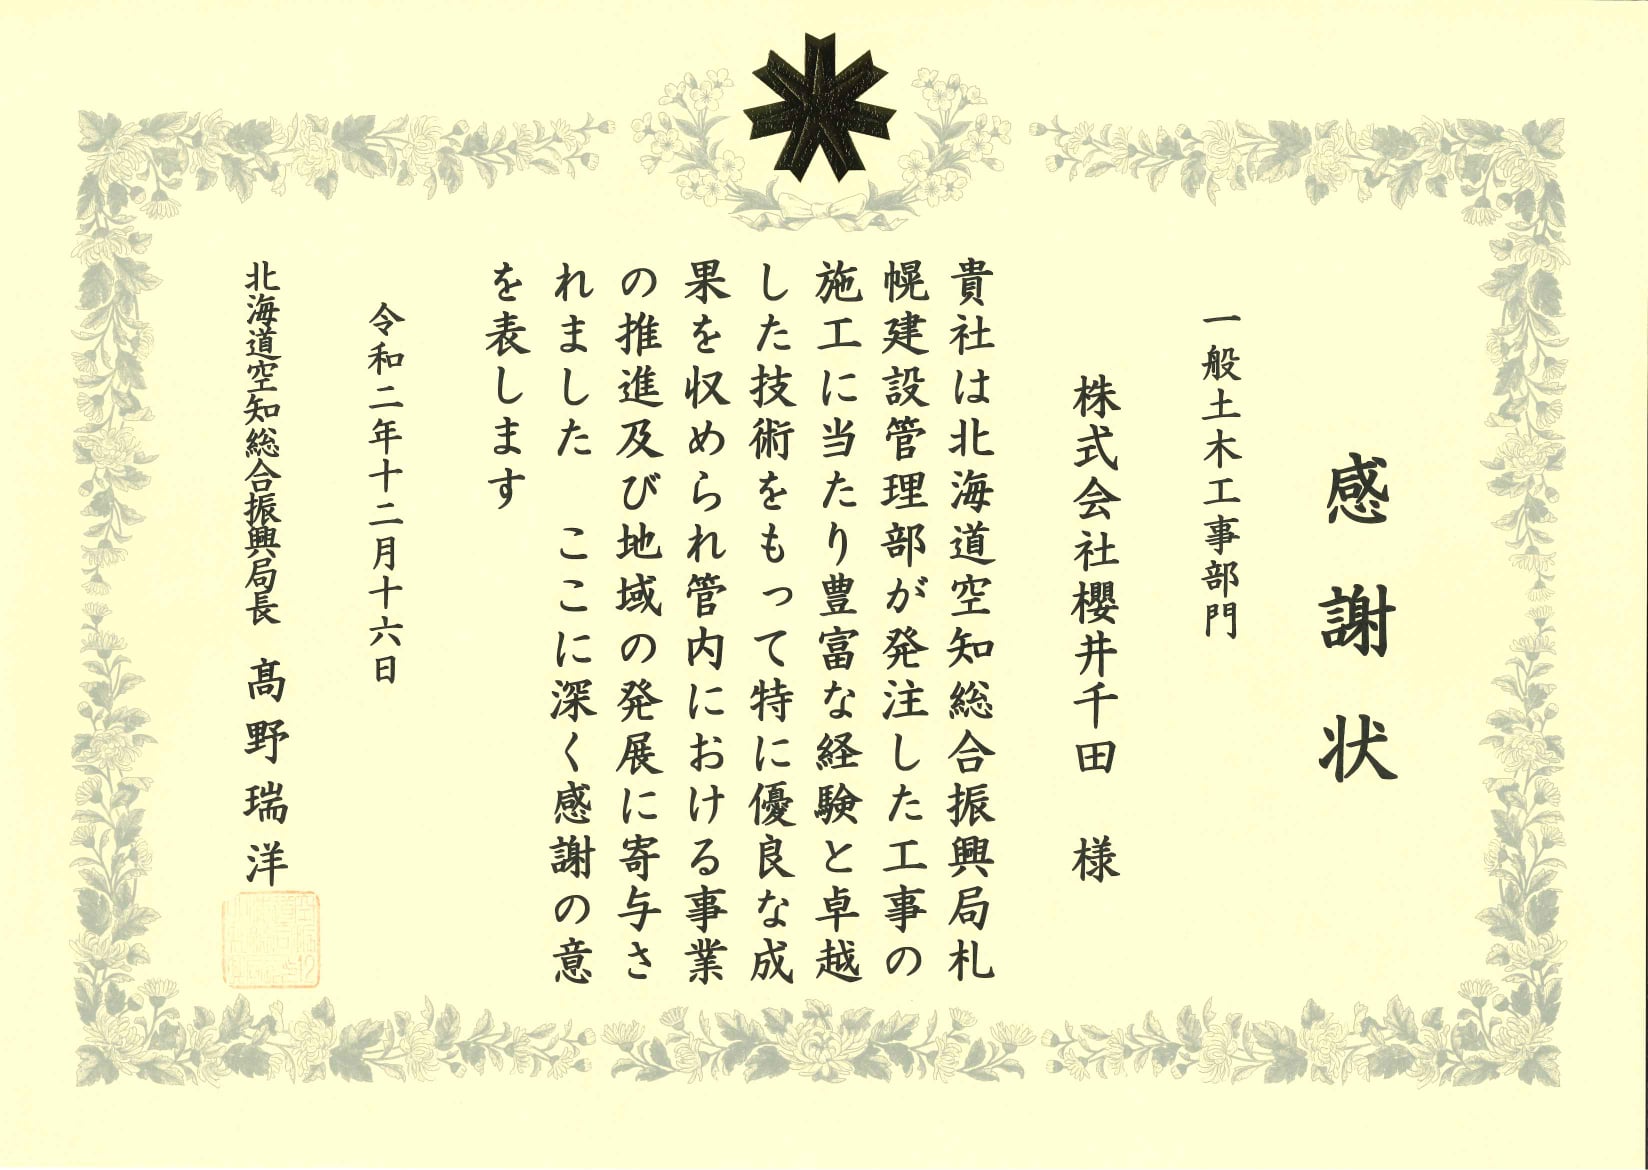 感謝状
一般土木工事部門
株式会社櫻井千田 様
貴社は北海道空知総合振興局札
幌建設管理部が発注した工事の
施工に当たり豊富な経験と卓越
した技術をもって特に優良な成
果を収められ管内における事業
の推進及び地域の発展に寄与さ
れました ここに深く感謝の意
を表します
令和二年十二月十六日
北海道空知総合振興局長 髙野瑞洋